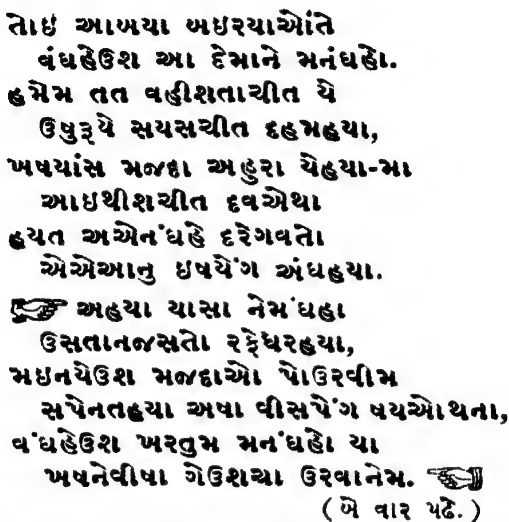 તોઇ આખયા ખઇરયાઓંતે
વંઘહેઉશ આ દેમાને મનંઘહો.
હમેમ તત વહીશતાચીત યે
ઉષુરૂયે સયસચીત દહમહયા,
ખષયાંસ મજદા અહુરા યેહયા-મા
આઇથીશચીત દવએથા
હયત અએનંઘહે દરેગવતો
એએઆનુ ઇષયેંગ અંઘહયા.
☞ અહયા યાસા નેમંઘહા
ઉસતાનજસતો રફેધરહયા,
મઇનયેઉશ મજદાઓ પોઉરવીમ
સપેનતહયા અષા વીસપેંગ ષયઓથના,
વંઘહેઉશ ખરતુમ મનંઘહો યા
ખષનેવીષા ગેઉશચા ઉરવાનેમ. ☜
(બે વાર પઢે.)